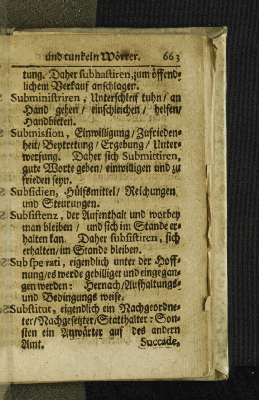 und tunkeln Wörter. 663
tung. Daher subhastiren, zum öffend-
lichem Verkauf anschlagen.
Subministriren, Unterschleif tuhn/ an
Hand gehen/ einschleichen/ helfen/
Handbieten.
Submission, Einwilligung/ Zufrieden-
heit/ Beytretung/ Ergebung/ Unter-
werfung. Daher sich Submittiren,
gute Worte geben/ einwilligen und zu
frieden seyn.
Subsidien, Hülfsmittel/ Reichungen
und Steurungen.
Subsistenz, der Aufenthalt und worbey
man bleiben/ und sich im Stande er-
halten kan. Daher subsistiren, sich
erhalten/ im Stande bleiben.
Sub spe rati, eigendlich unter der Hoff-
nung/ es werde gebilliget und eingegan-
gen werden: Hernach/ Aufhaltungs-
und Bedingungs weise.
Substitut, eigendlich ein Nachgeordne-
ter/ Nachgesetzter/ Statthalter: Son-
sten ein Anwärter auf des andern
Amt. Succade,